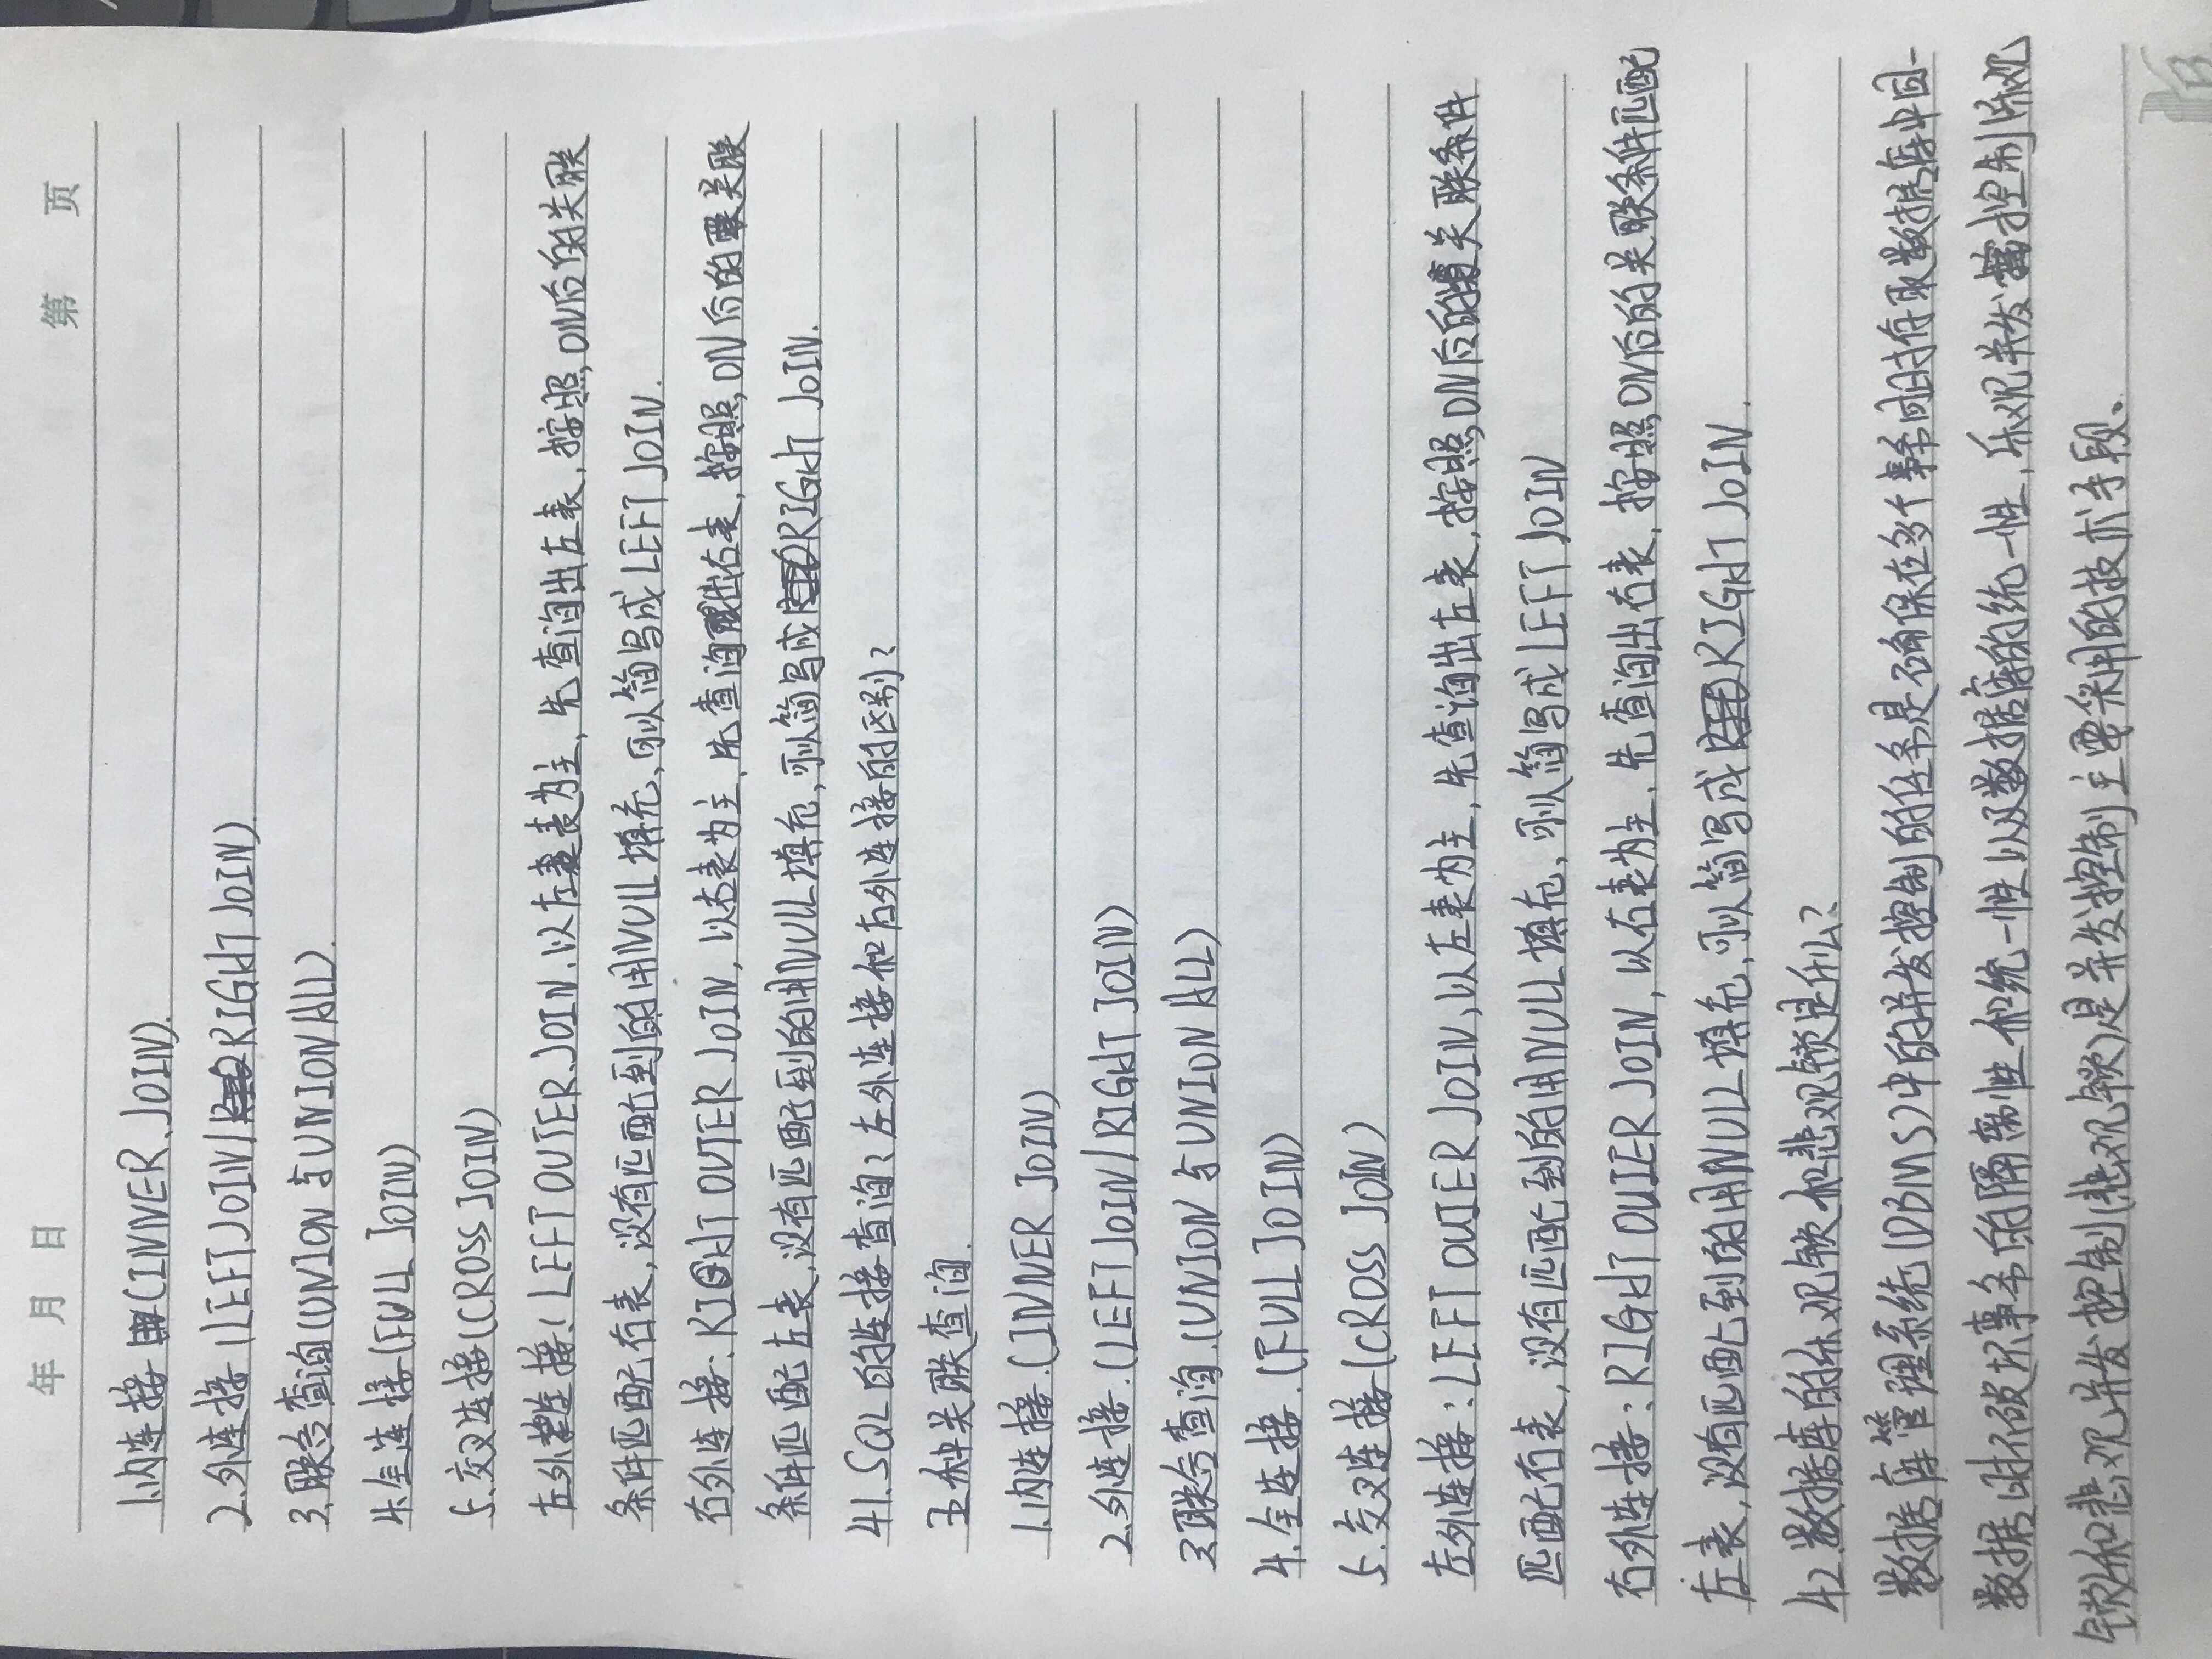 年 月 日 第 页
1.内连接(INNER JOIN).
2.外连接(LEFT JOIN/RIGHT JOIN).
3.联合查询(UNION与UNION ALL).
4.全连接(FULL JOIN)
5.交叉连接(CROSS JOIN)
左外连接:LEFT OUTER JOIN,以左表为主,先查询出左表,按照ON后的关联
条件匹配右表,没有匹配到的用NULL填充,可以简写成LEFT JOIN.
右外连接:RIGHT OUTER JOIN,以右表为主,先查询出右表,按照ON后的关联
条件匹配左表,没有匹配到的用NULL填充,可以简写成RIGHT JOIN.
41.SQL的连接查询?左外连接和右外连接的区别?
五种关联查询.
1.内连接.(INNER JOIN)
2.外连接.(LEFT JOIN/RIGHT JOIN)
3.联合查询.(UNION与UNION ALL)
4.全连接.(FULL JOIN)
5.交叉连接(CROSS JOIN)
左外连接:LEFT OUTER JOIN,以左表为主,先查询出左表,按照ON后的关联条件
匹配右表,没有匹配到的用NULL填充,可以简写成LEFT JOIN
右外连接:RIGHT OUTER JOIN,以右表为主,先查询出右表,按照ON后的关联条件匹配
左表,没有匹配到的用NULL填充,可以简写成RIGHT JOIN.
42.数据库的乐观锁和悲观锁是什么?
数据库管理系统(DBMS)中的并发控制的任务是确保在多个事务同时存取数据库中同一
数据时不破坏事务的隔离性和统一性以及数据库的统一性,乐观并发控制(乐观
锁)和悲观并发控制(悲观锁)是并发控制主要采用的技术手段。